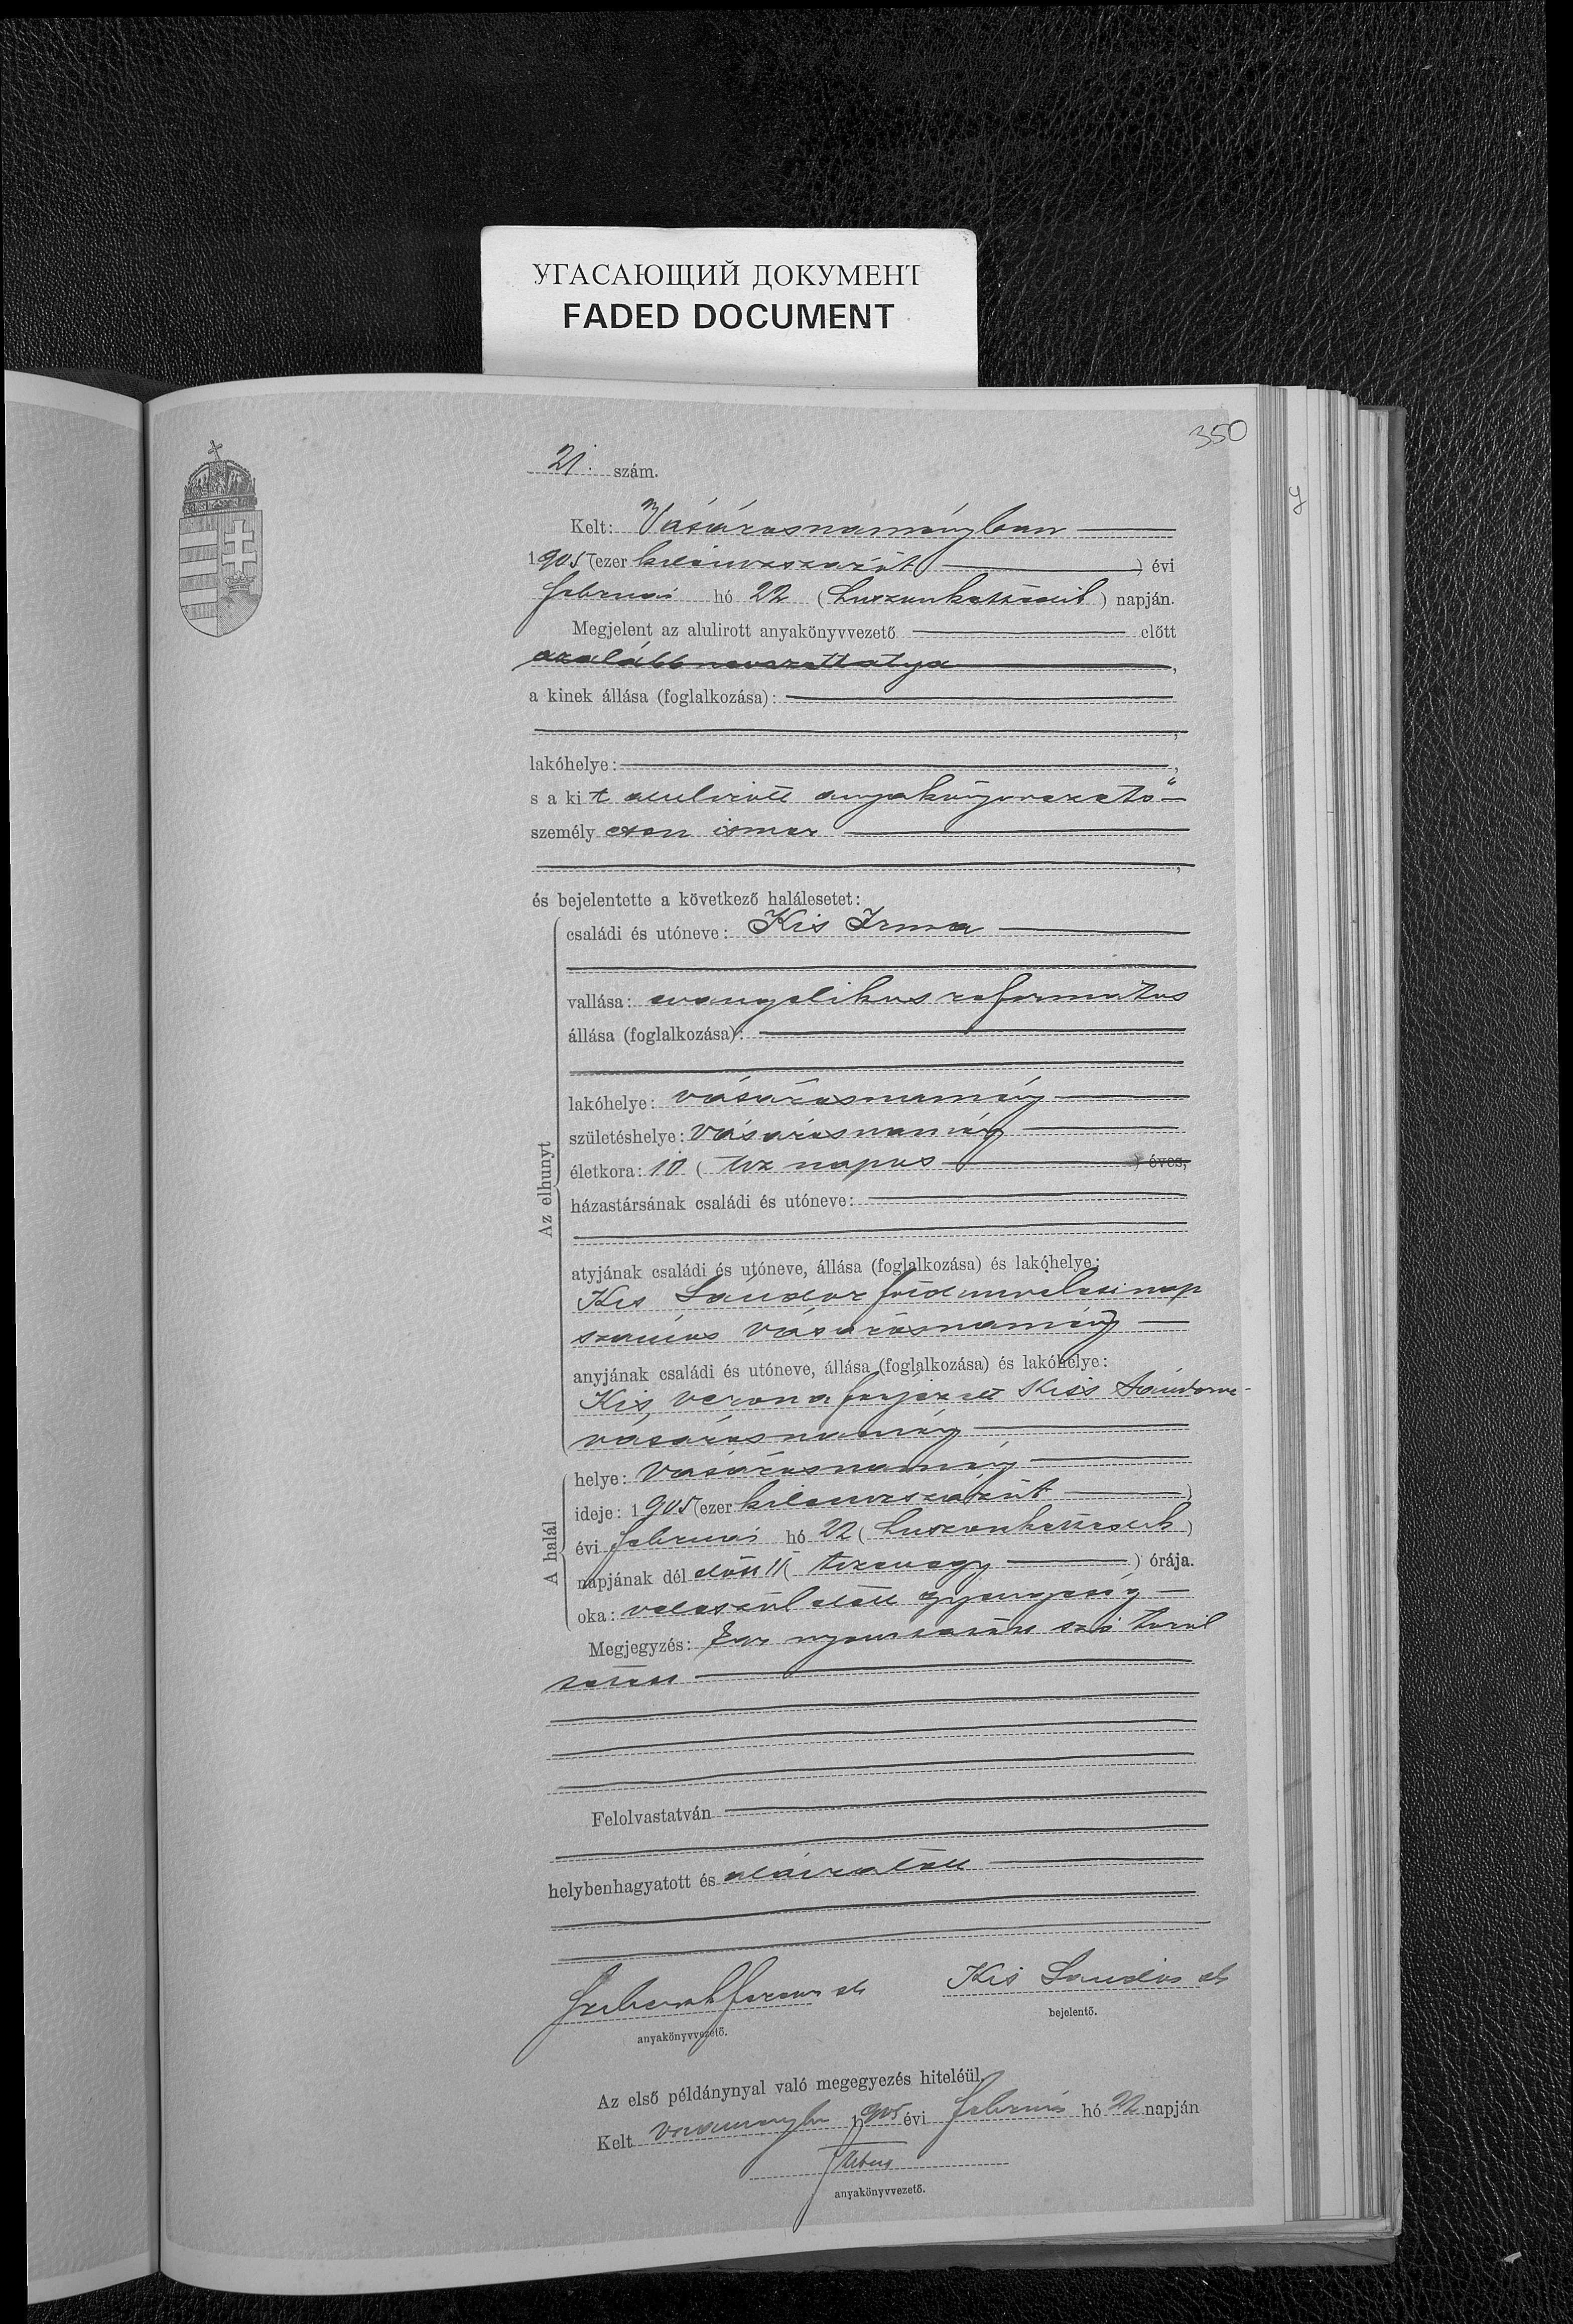 УГАСАЮЩИЙ ДОКУМЕНТ
FADED DOCUMENT
350
21. szám.
Kelt: Vásárosnaményban
1905 (ezer kilenczszázöt ) évi
február hó 22 (huszonkettedik) napján.
Megjelent az alulirott anyakönyvvezető előtt
azalább nevezett atya,
a kinek állása (foglalkozása):
,
lakóhelye: ,
s a kit alulirott anyakönyvvezető
személyesen ismer
,
és bejelentette a következő halálesetet:
Az elhunyt
családi és utóneve: Kis Irma
vallása: evangelikus református
állása (foglalkozása):
lakóhelye: vásárosnamény
születéshelye: vásárosnamény
életkora: 10 ( tiz napos ) éves,
házastársának családi és utóneve:
atyjának családi és utóneve, állása (foglalkozása) és lakóhelye:
Kis Sándor földmivelesi nap
számos vásárosnamény
anyjának családi és utóneve, állása (foglalkozása) és lakóhelye:
Kis Verona férjezett Kiss Sándorné
vásárosnamény
A halál
helye: Vásárosnamény
ideje: 1905 (ezer kilenczszázöt )
évi február hó 22 (huszonkettedik)
napjának dél előtt 11 ( tizenegy ) órája.
oka: veleszületett gyengeség
Megjegyzés: Egy nyomtatott szó töröl
tetett
Felolvastatván
helybenhagyatott és aláiratott
Ferencz sk
anyakönyvvezető.
Kis Sándor sk
bejelentő.
Az első példánynyal való megegyezés hiteléül.
Kelt 1905 évi február hó 22 napján
anyakönyvvezető.